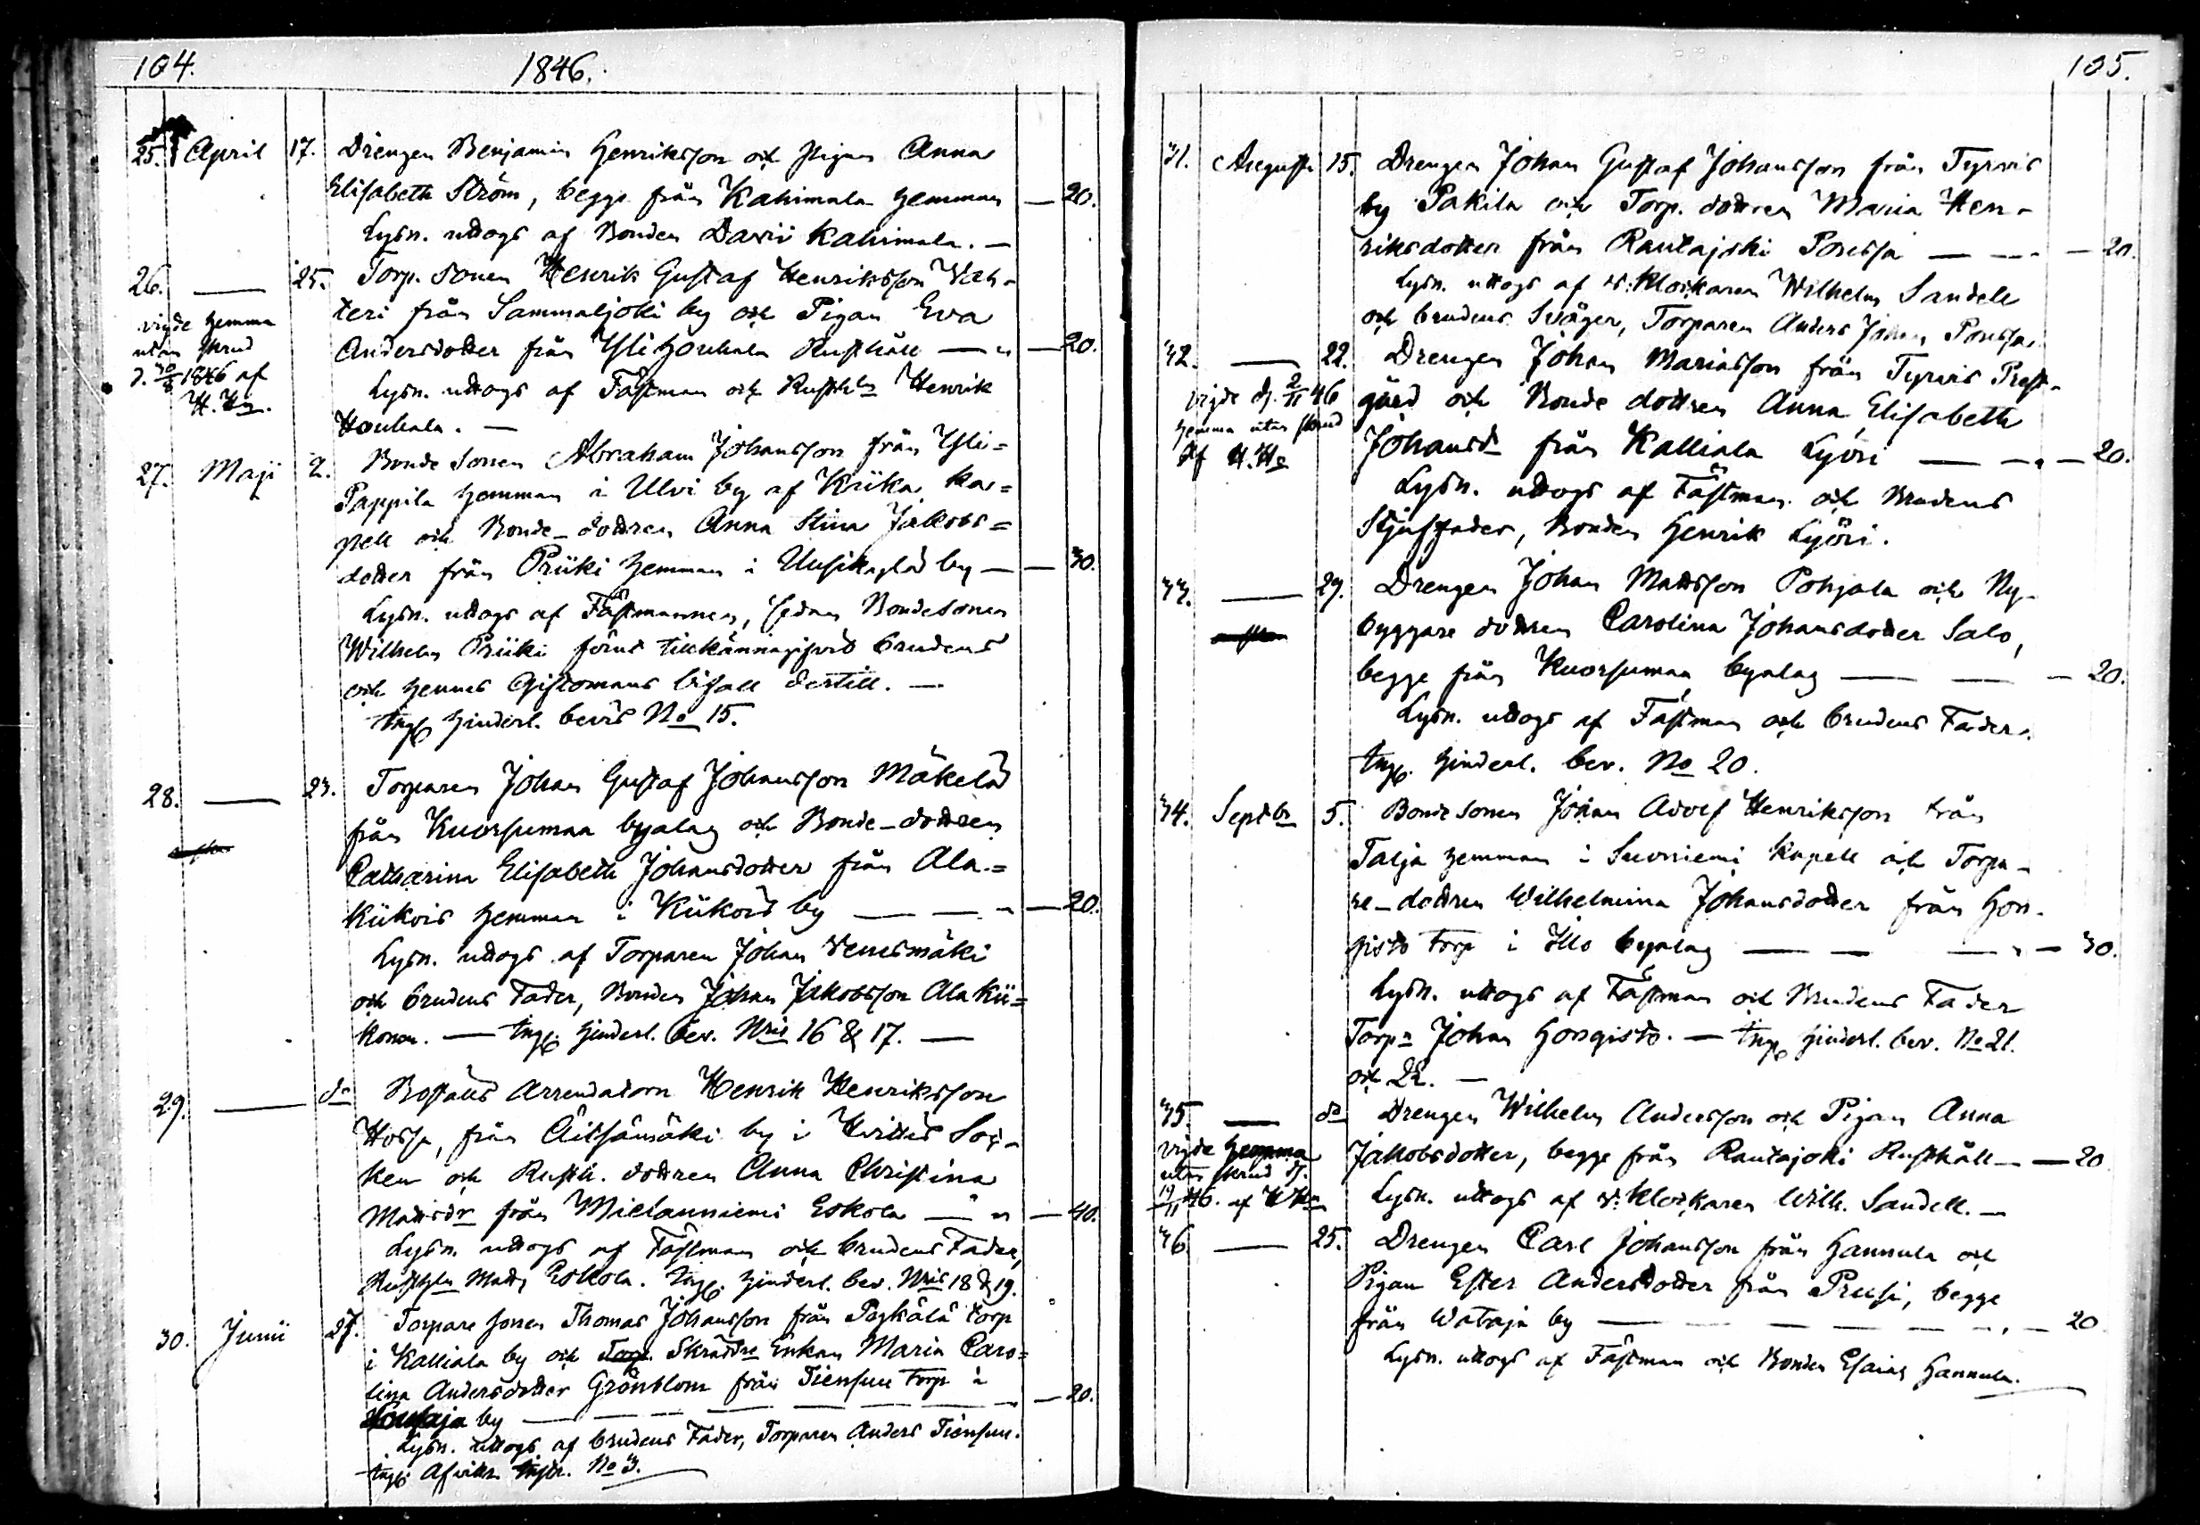 104.
1846.
25. April 17. Drengen Benjamin Henriksson och Pigan Anna
Elisabeth Ström, begge från Kahimala hemman — 20.
Lysn. uttogs af Bonden David Kahimala. —
26. — 25. Torp. Sonen Henrik Gustaf Henriksson Vah-
teri från Sammaljoki by och Pigan Eva
Andersdotter från Yli Houhala Rusthåll — " — 20.
Lysn. uttogs af Fästman och Rusthln Henrik
Houhala. —
vigde hemma
utan skrud
d. 30/8 1846 af
H. Hg.
27. Maji 2. Bonde Sonen Abraham Johansson från Yli=
Pappila hemman i Ulvi by af Kiika ka=
pell och Bonde-dottren Anna Stina Jakobs=
dotter från Priiki hemman i Uusikylä by — — 30.
Lysn. uttogs af Fästmannen, sedan Bondesonen
Wilhelm Priiki förut tillkännagifvit brudens
och hennes Giftomans bifall dertill. —
Ingf. hinderl. bevis No 15.
28. — 23. Torparen Johan Gustaf Johansson Mäkelä
från Kuorsumaa byalag och Bonde-dottren
Catharina Elisabeth Johansdotter från Ala=
Kiikois hemman i Kiikois by — — " — 20.
Lysn. uttogs af Torparen Johan Venesmäki
och brudens Fader, Bonden Johan Jakobsson Ala Kii=
konen. — Ingf. hinderl. bev. Nris 16 & 17. —
29. — do Boställs Arrendatorn Henrik Henriksson
Hossa, från Äitsänsäki by i Hvittis Soc-
ken och Rusth. dottren Anna Christina
Mattsdr från Mielauniemi Eskola — " " — 40.
Lysn. uttogs af Fästman och brudens Fader,
Rusthln Matts Eskola. Ingf. hinderl. bev. Nris 18 & 19.
30. Junii 27. Torpare sonen Thomas Johansson från Pajkälä torp
i Kalliala by och Torp. Skräddre Enkan Maria Caro=
lina Andersdotter Grönblom från Tiensuu torp i
by — — — — — — — 20.
Lysn. uttogs af brudens Fader, Torparen Anders Tiensuu.
Ingf. Afvittr. Instr. No 3.
105.
31. Augusti 15. Drengen Johan Gustaf Johansson från Tyrvis
by Pakila och Torp. dottren Maria Hen-
riksdotter från Rautajoki Poussa — — — 20.
Lysn. uttogs af v. Klockaren Wilhelm Sandell
och brudens Svåger, Torparen Anders Johan Poussa.
32. — 22. Drengen Johan Mariasson från Tyrvis Prest-
gård och Bonde dottren Anna Elisabeth
Johansdr från Kalliala Lyöri — — " — 20.
Lysn. uttogs af Fästman och Brudens
Stjuffader, Bonden Henrik Lyöri.
vigde d. 2/11 46
hemma utan skrud
af H. Hg
33. — 29. Drengen Johan Mattsson Pohjala och Ny-
byggare dottren Carolina Johansdotter Salo,
begge från Kuorsumaa byalag — — — 20.
Lysn. uttogs af Fästman och brudens Fader.
Ingf. hinderl. bev. No 20.
34. Septbr 5. Bonde Sonen Johan Adolf Henriksson från
Talja hemman i Suoniemi kapell och Torpa-
re-dottren Wilhelmina Johansdotter från Hon-
gisto torp i Illo byalag — — — " — 30.
Lysn. uttogs af Fästman och Brudens Fader
Torpn Johan Hongisto. — Ingf. hinderl. bev. No 21.
och 22. —
35. — do Drengen Wilhelm Andersson och Pigan Anna
Jakobsdotter, begge från Rautajoki Rusthåll — — 20
Lysn. uttogs af v. Klockaren Wilh. Sandell. —
vigde hemma
utan skrud d.
19/11 46. af H Hg
36 — 25. Drengen Carl Johansson från Hannula och
Pigan Ester Andersdotter från Preusi, begge
från Wataja by — — — — — — 20
Lysn. uttogs af Fästman och Bonden Esaias Hannula.